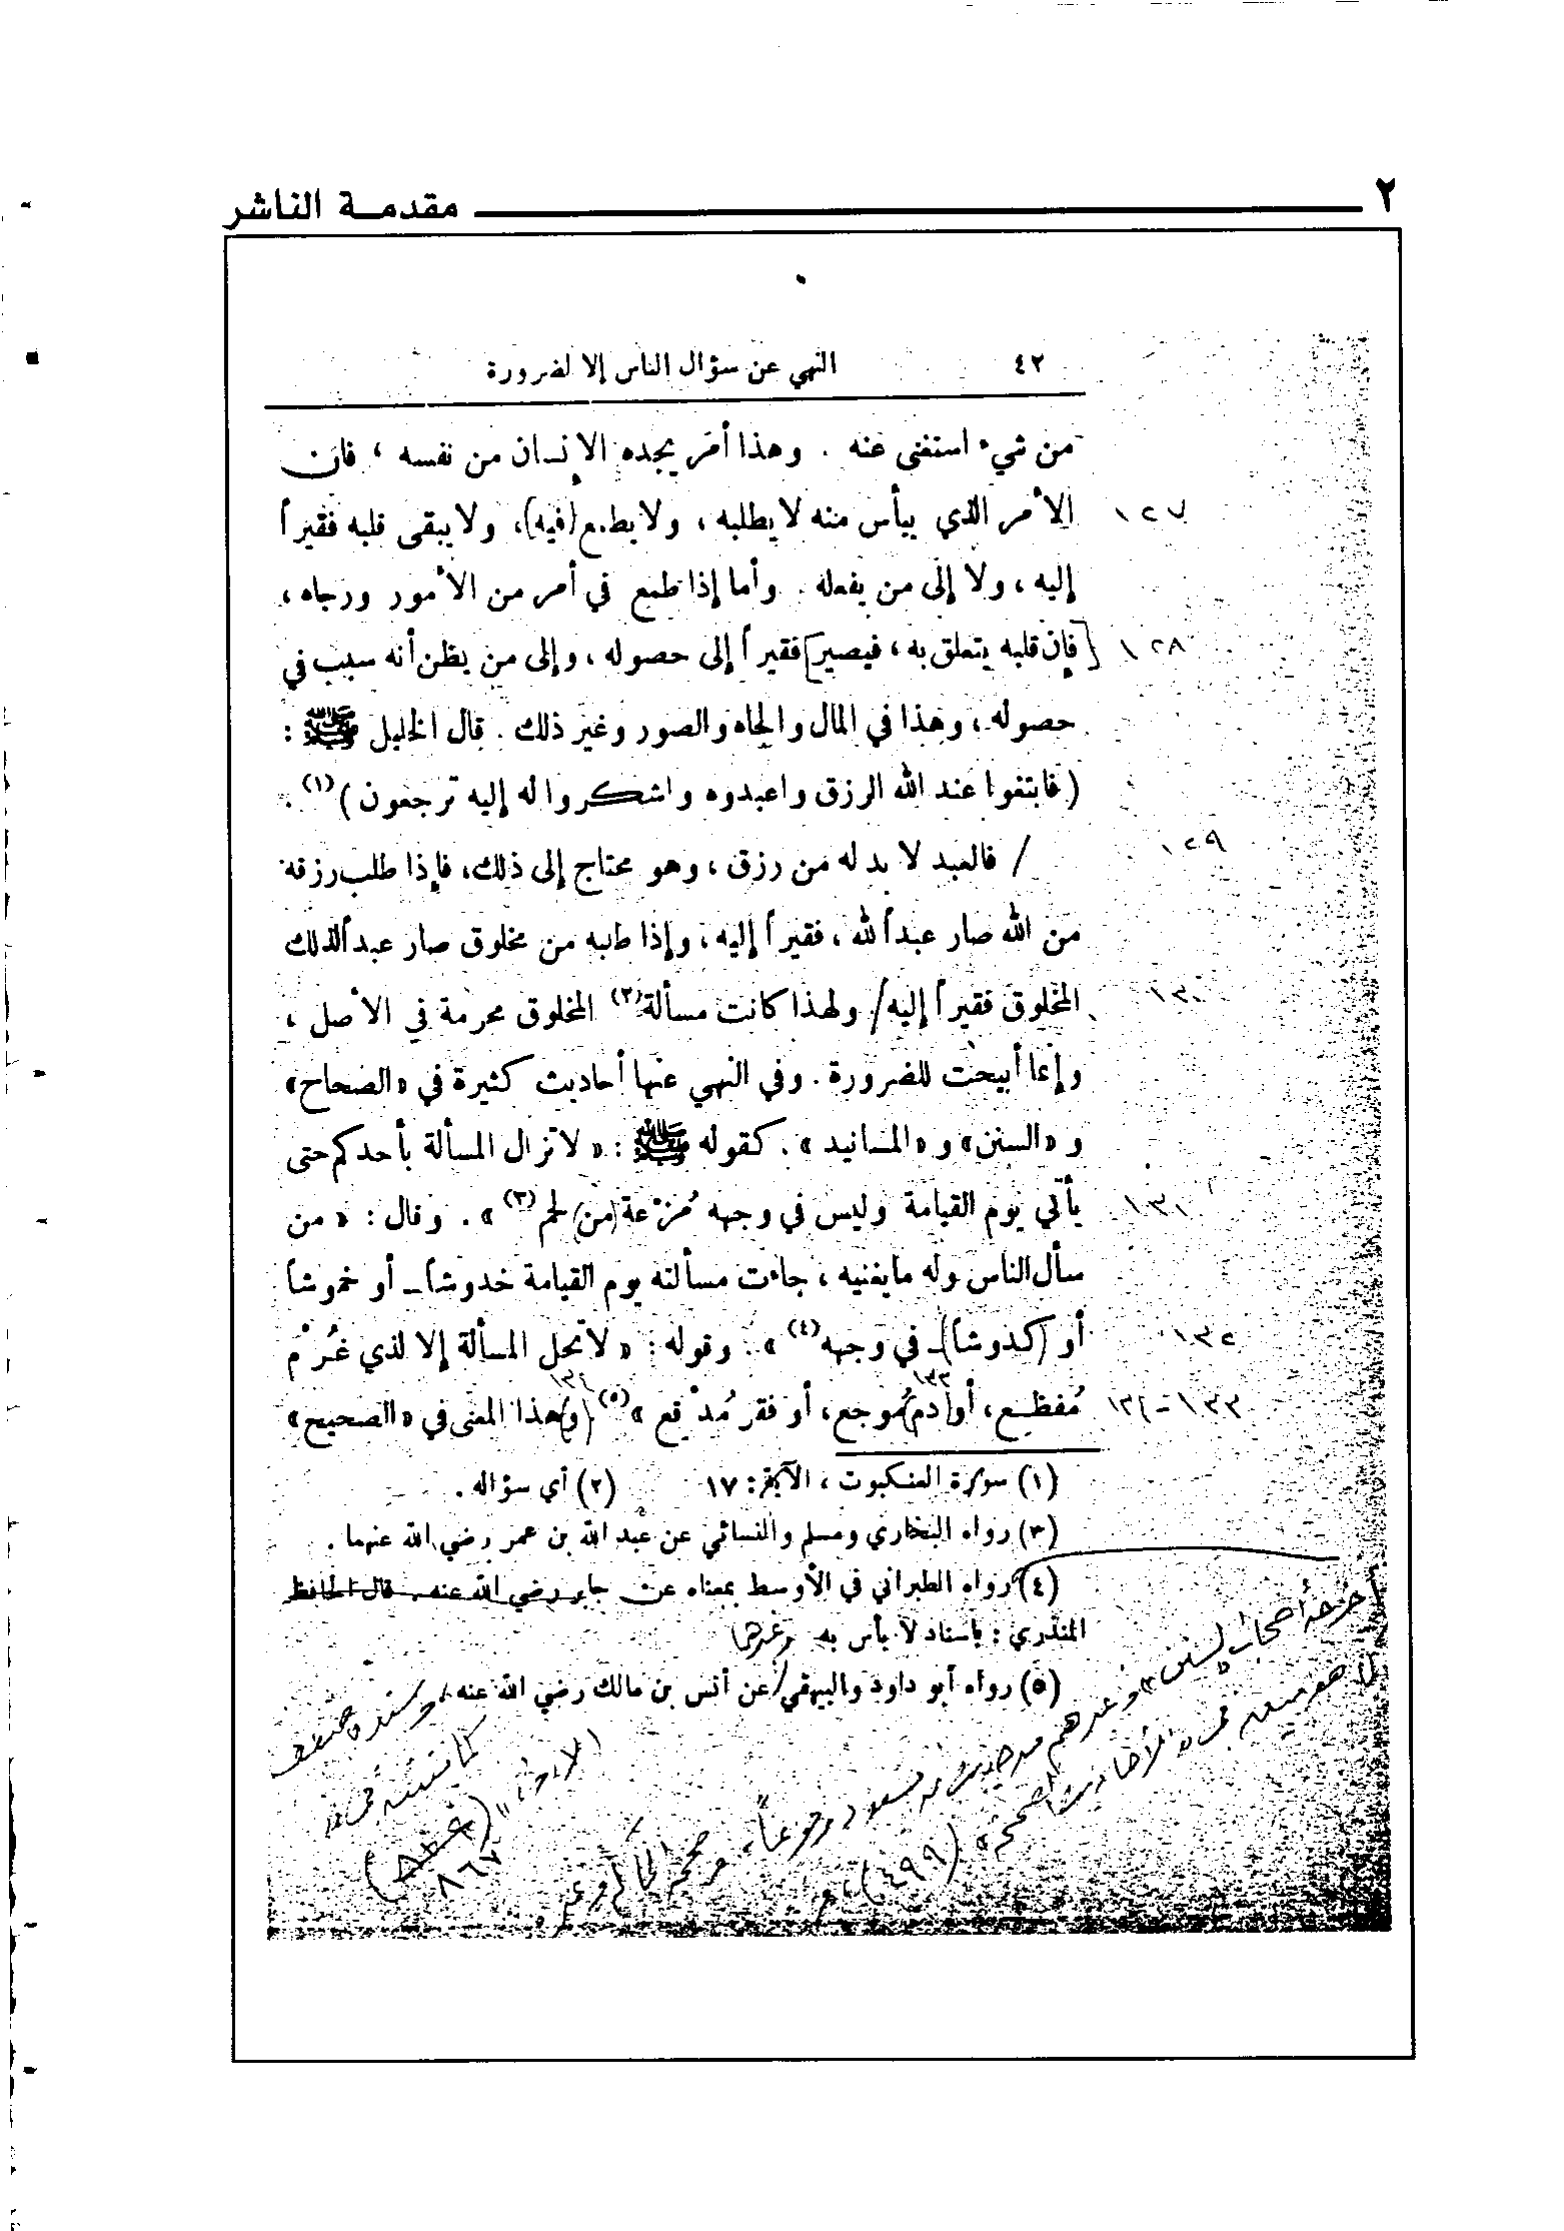 ٢ مقدمة الناشر
٤٢ النهي عن سؤال الناس إلا لضرورة
من شيء استغنى عنه . وهذا أمر يجده الإنسان من نفسه ، فان
١٢٧ الأمر الذي ييأس منه لا يطلبه ، ولا يطمع (فيه)، ولا يبقى قلبه فقيراً
إليه ، ولا إلى من يفعله . وأما إذا طمع في أمر من الأمور ورجاه ،
١٢٨ [فإن قلبه يتعلق به ، فيصير] فقيراً إلى حصوله ، وإلى من يظن أنه سبب في
حصوله ، وهذا في المال والجاه والصور وغير ذلك . قال الخليل ﷺ :
(فابتغوا عند الله الرزق واعبدوه واشكروا له إليه ترجعون) (١) .
١٢٩ / فالعبد لا بد له من رزق ، وهو محتاج إلى ذلك ، فإذا طلب رزقه
من الله صار عبداً لله ، فقيراً إليه ، وإذا طلبه من مخلوق صار عبداً لذلك
١٣٠ المخلوق فقيراً إليه/ ولهذا كانت مسألة (٢) المخلوق محرمة في الأصل ،
وإنما أبيحت للضرورة . وفي النهي عنها أحاديث كثيرة في «الصحاح»
و «السنن» و «المسانيد» . كقوله ﷺ : « لا تزال المسألة بأحدكم حتى
١٣١ يأتي يوم القيامة وليس في وجهه مُزْعة (من) لحم (٣) » . وقال : « من
سأل الناس وله ما يغنيه ، جاءت مسألته يوم القيامة خدوشاً ـ أو خموشاً
١٣٢ أو (كدوشاً) ـ في وجهه (٤) » . وقوله : « لا تحل المسألة إلا لذي غُرْم
١٣٣-١٣٤ مُفظِع ، أو (دم) ١٣٣ مُوجع ، أو فقر مُدْقِع » (٥) ١٣٤ (و) هذا المعنى في «الصحيح»
(١) سورة العنكبوت ، الآية : ١٧ (٢) أي سؤاله .
(٣) رواه البخاري ومسلم والنسائي عن عبد الله بن عمر رضي الله عنهما .
(٤) رواه الطبراني في الأوسط بمعناه عن جابر رضي الله عنه . قال الحافظ
المنذري : باسناد لا بأس به وغيرهما
(٥) رواه أبو داود والبيهقي/ عن أنس بن مالك رضي الله عنه ، وسنده ضعيف
كما بينته في
"الإرواء" (٨٦٧)
أخرجه أصحاب السنن وغيرهم من حديث ابن مسعود مرفوعاً ، وصححه الحاكم وغيره
"الأحاديث الصحيحة" (٤٩٩)